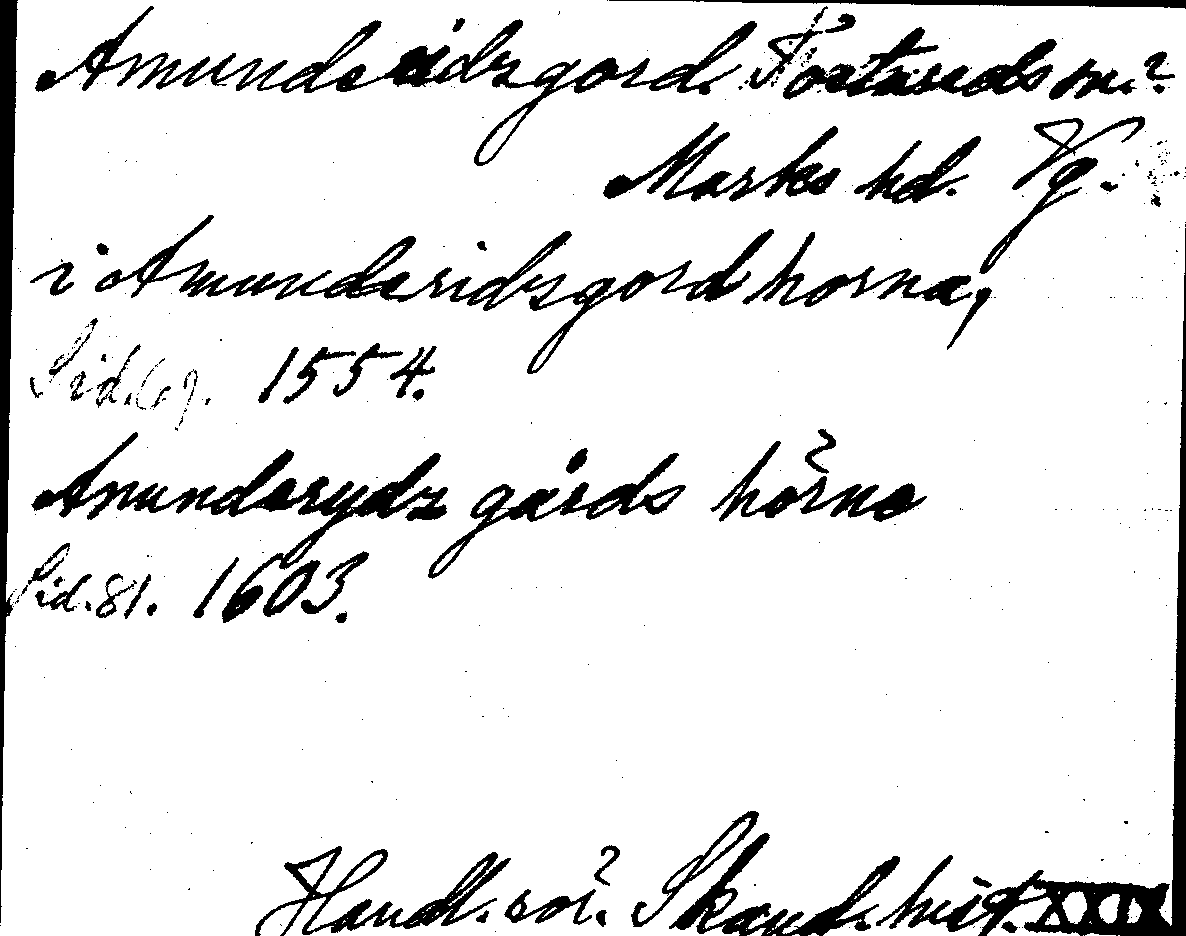 Amunderidzgord. Tostareds sn.?
Marks hd. Vg.
i Amunderidzgord horna,
Sid. 1554.
Anunderydz gårds hörne
Sid. 81. 1603.
Handl. rör. Skand. hist. XXIX